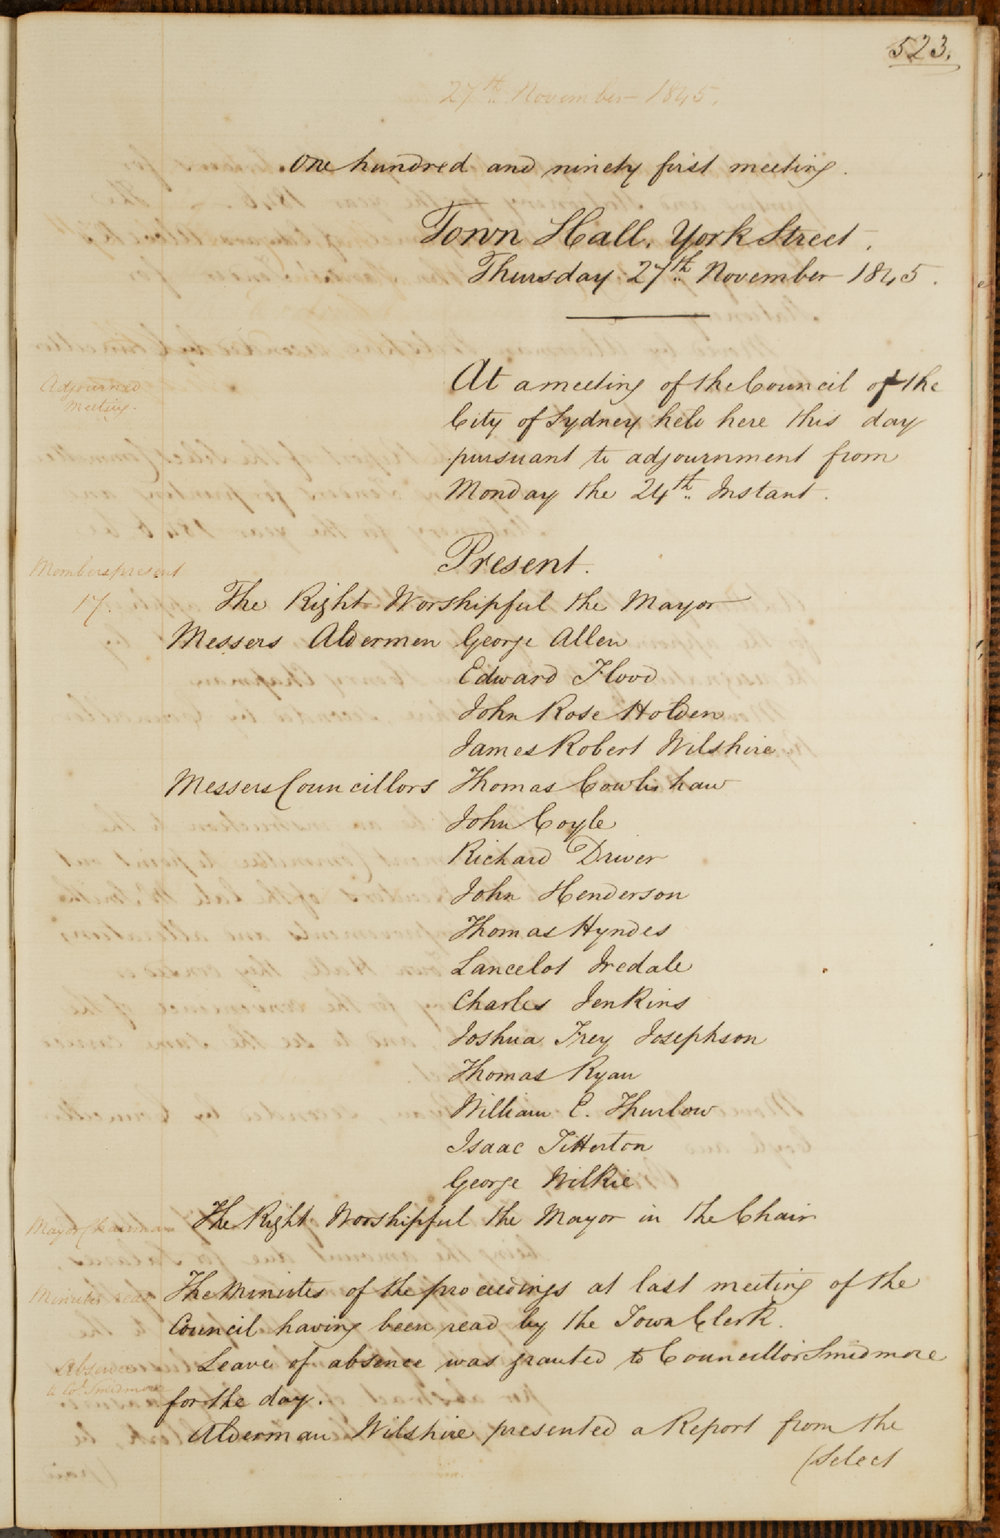 523.
27th November 1845.
One hundred and ninety first meeting.
Town Hall, York Street.
Thursday 27th November 1845.
Adjourned
Meeting.
At a meeting of the Council of the
City of Sydney held here this day
pursuant to adjournment from
Monday the 24th Instant.
Present.
Members present
17.
The Right Worshipful the Mayor
Messers Aldermen George Allen
Edward Flood
John Rose Holden
James Robert Wilshire
Messers Councillors Thomas Cowlishaw
John Coyle
Richard Driver
John Henderson
Thomas Hyndes
Lancelot Iredale
Charles Jenkins
Joshua Frey Josephson
Thomas Ryan
William C. Thurlow
Isaac Titterton
George Wilkie
Mayor Chairman
The Right Worshipful the Mayor in the Chair
Minutes read
The Minutes of the proceedings at last meeting of the
Council having been read by the Town Clerk.
Absence
to Cor Smidmore
Leave of absence was granted to Councillor Smidmore
for the day.
Alderman Wilshire presented a Report from the
(Select